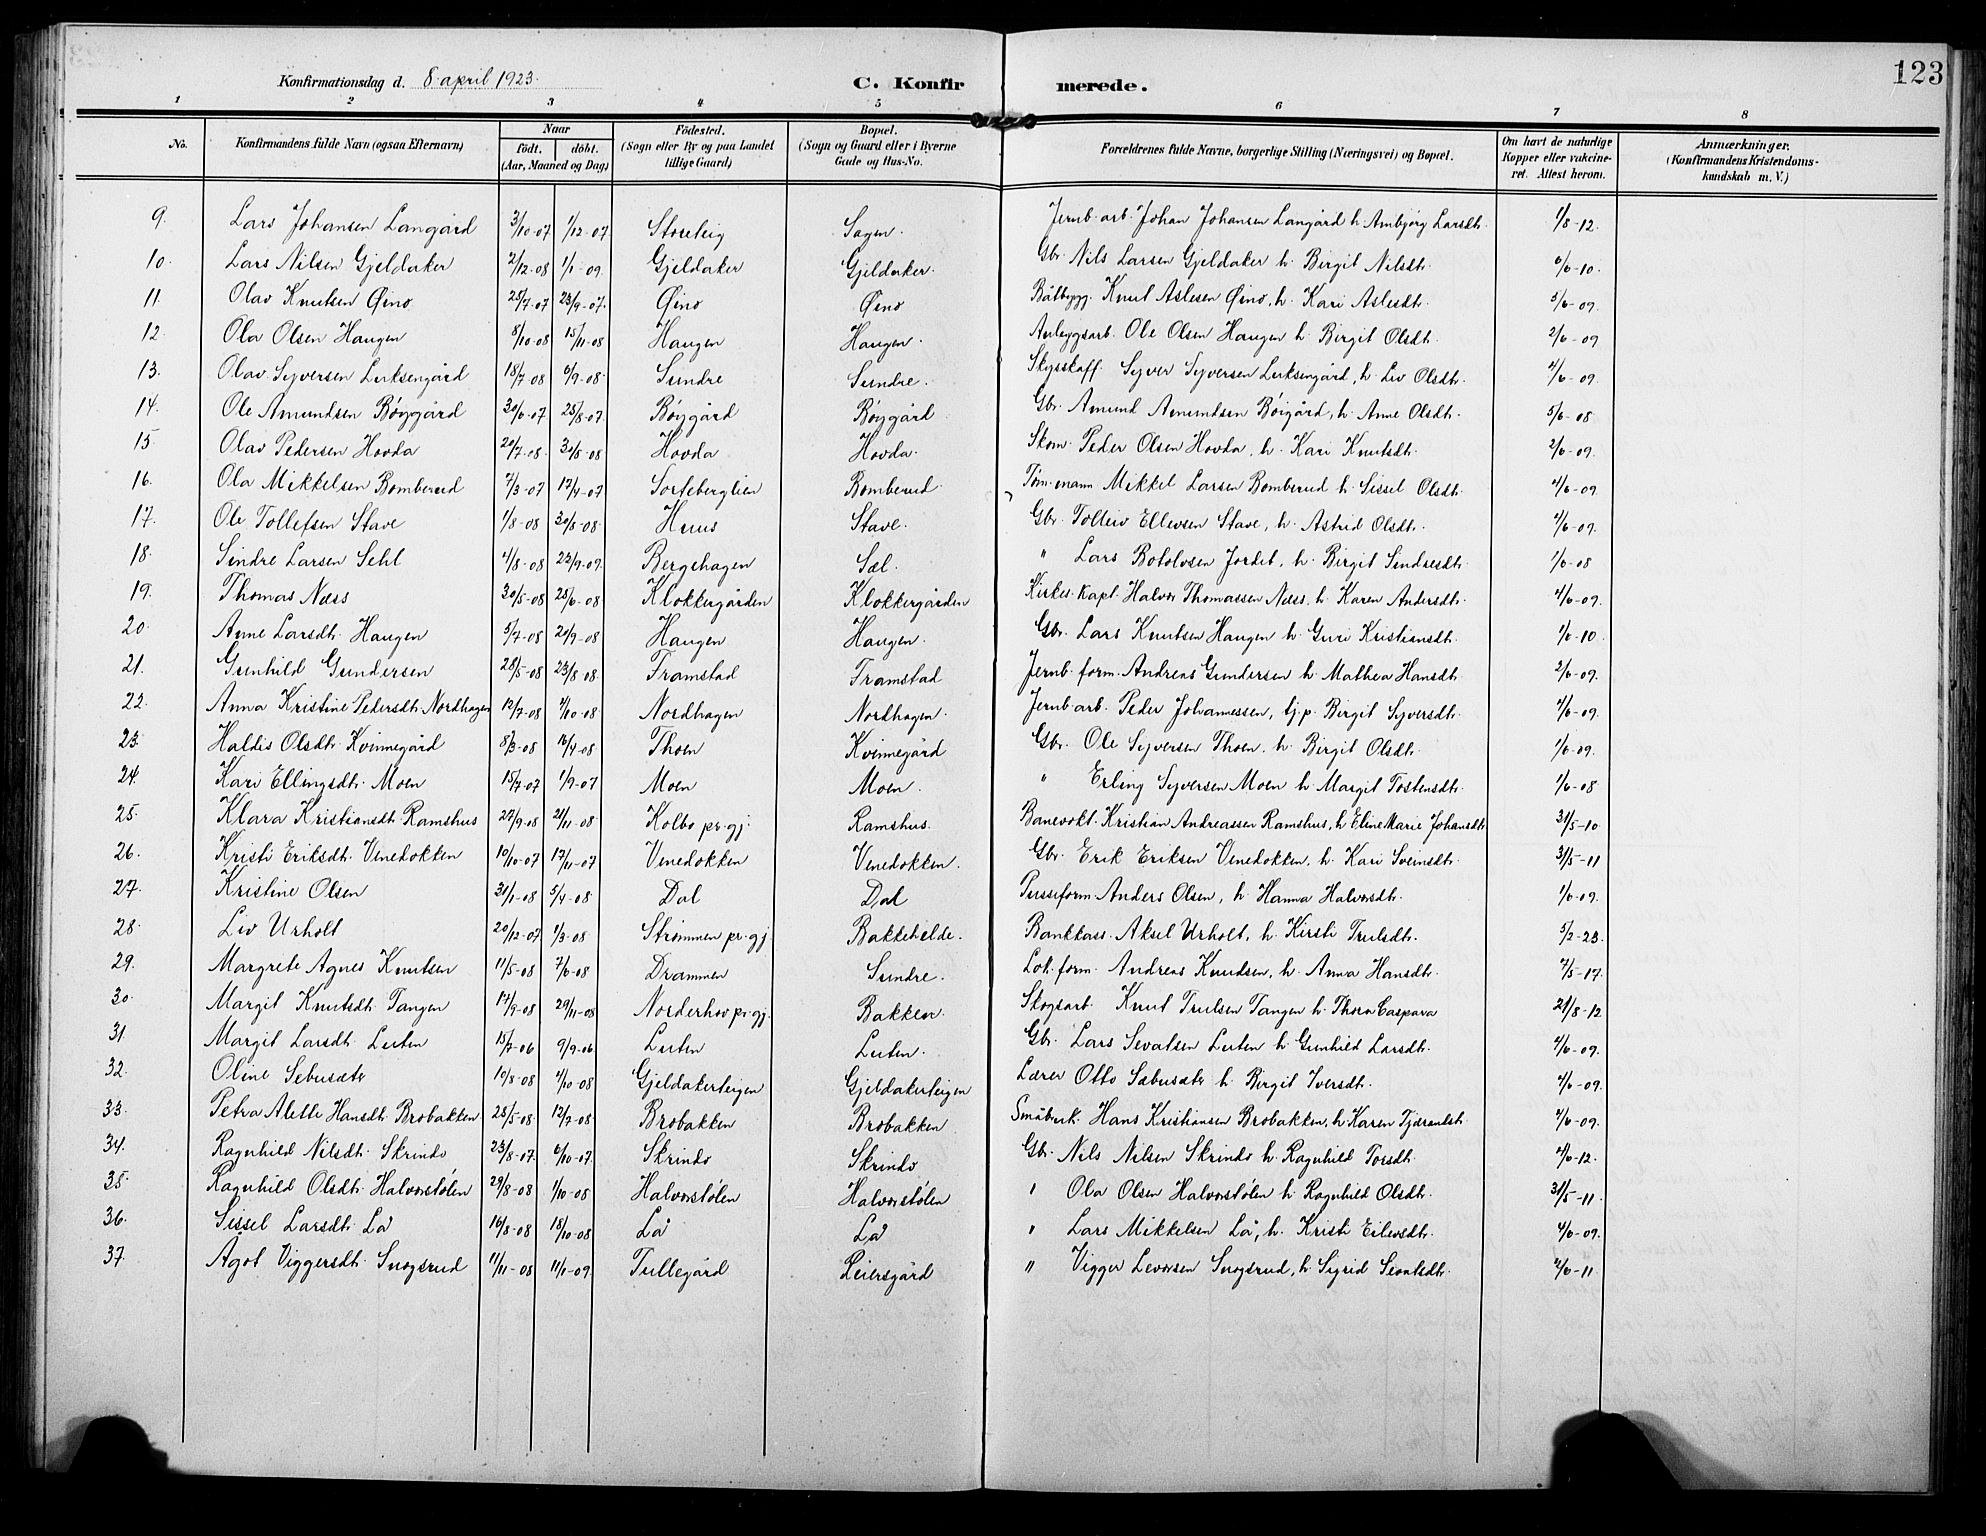 123
Konfirmationsdag d. 8. april 1923.
C. Konfirmerede.
1 2 3 4 5 6 7 8
No. | Konfirmandens fulde Navn (ogsaa Efternavn) | Naar födt. döbt. (Aar, Maaned og Dag) | Födested. (Sogn eller By og paa Landet tillige Gaard) | Bopæl. (Sogn og Gaard eller i Byerne Gade og Hus-No. | Forældrenes fulde Navne, borgerlige Stilling (Næringsvei) og Bopæl. | Om havt de naturlige Kopper eller vakcineret. Attest herom. | Anmærkninger. (Konfirmandens Kristendomskundskab m. V.)
9. Lars Johansen Langård 3/10-07 1/12-07 Storeteig Sagen. Jernb. arb. Johan Johansen Langård h. Ambjørg Larsdtr. 1/8-12.
10. Lars Nilsen Gjeldaker 2/12-08 1/1-09. Gjeldaker Gjeldaker. Gbr. Nils Larsen Gjeldaker h. Birgit Nilsdtr. 6/6-10.
11. Olav Knutsen Øino 25/7-07 23/9-07. Øino Øino Båtbygg. Knut Aslesen Øino, h. Kari Aslesdtr. 5/6-09.
12. Ola Olsen Haugen 8/10-08 15/11-08 Haugen Haugen. Anleggsarb. Ole Olsen Haugen h. Birgit Olsdtr. 2/6-09
13. Olav Syversen Lirksengård 18/7-08 6/9-08. Sundre Sundre. Skysskaff. Syver Syversen Lirksengård, h. Liv Olsdtr. 4/6-09.
14. Ole Amundsen Bøygård 30/6-07 25/8-07. Bøygård Bøygård Gbr. Amund Amundsen Bøigård, h. Anne Olsdtr. 5/6-08
15. Olav Pedersen Hovda 20/7-08. 30/8-08 Hovda Hovda. Skom. Peder Olsen Hovda, h. Kari Knutsdtr. 2/6-09.
16. Ola Mikkelsen Bomberud 7/3-07 17/4-07 Sorteberglien Bomberud. Tøm.mann Mikkel Larsen Bomberud h. Sissel Olsdtr. 4/6-09.
17. Ole Tollefsen Stave 1/8-08 30/8-08. Huus Stave. Gbr. Tolleiv Ellevsen Stave, h. Astrid Olsdtr. 4/6-09.
18. Sindre Larsen Sehl 4/8-08 22/9-09. Bergshagen Sæl. " Lars Botolvsen Jordet, h. Birgit Sindresdtr. 1/6-08
19. Thomas Næss 30/5-08 28/6-08 Klokkergården Klokkergården Kirkes. Kapt. Halvor Thomassen Næss. h. Karen Andersdtr. 4/6-09.
20. Anne Larsdtr. Haugen 5/7-08 20/9-08 Haugen Haugen. Gbr. Lars Knutsen Haugen h. Guri Kristiansdtr. 1/6-10.
21. Gunhild Gundersen 28/5-08 23/8 08. Framstad Framstad Jernb. form. Andreas Gundersen h. Mathea Hansdtr. 2/6-09.
22. Anna Kristine Pedersdtr. Nordhagen 12/7-08 4/10-08 Nordhagen Nordhagen. Jernb. arb. Peder Johannessen, tj.p. Birgit Syversdtr. 4/6-09.
23. Haldis Olsdtr. Kvinnegård 8/3-08 16/4-08 Thoen Kvinnegård Gbr. Ole Syversen Thoen. h. Birgit Olsdtr. 1/6-09.
24. Kari Ellingsdtr. Moen 15/7-07 1/9-07 Moen Moen. " Erling Syversen Moen h. Margit Tostensdtr. 1/6-08
25. Klara Kristiansdtr. Ramshus 27/9-08 21/11-08. Kolbo pr.gj. Ramshus. Banevokt. Kristian Andreassen Ramshus, h. Eline Marie Johansdtr 31/5-10
26. Kristi Eriksdtr. Venedokken 10/10-07 17/11-07 Venedokken Venedokken. Gbr. Erik Eriksen Venedokken, h. Kari Sveinsdtr. 31/5-11
27. Kristine Olsen 31/1-08 5/4-08 Dal Dal Anders Olsen, h. Hanna Halvorsdtr. 1/6-09.
28. Liv Urholt 20/12-07 1/3-08 Strømmen pr.gj. Bakkehelde. Bankkass. Aksel Urholt, h. Kirsti Trulsdtr. 5/2-23.
29. Margrete Agnes Knutsen 11/5-08 7/6-08 Drammen Sundre. Lok. form. Andreas Knudsen, h. Anna Hansdtr. 7/5-17.
30. Margit Knutsdtr. Tangen 17/9-08 29/11-08 Norderhov pr.gj. Bakken. Skogsarb. Knut Trulsen Tangen h. Thora Caspara 21/8-12
31. Margit Larsdtr. Luten 15/7-06 9/9-06. Luten Luten. Gbr. Lars Sevatsen Luten h. Gunhild Larsdtr. 4/6-09.
32. Oline Sebusæter 10/8-08 4/10-08 Gjeldakerteigen Gjeldakerteigen Lærer Otto Sæbusæter h. Birgit Iversdtr. 4/6-09.
33. Petra Alette Hansdtr. Brobakken 28/5-08. 12/7-08 Brobakken Brobakken. Småbruk. Hans Kristiansen Brobakken, h. Karen Tjerandsdtr. 2/6-09.
34. Ragnhild Nilsdtr. Skrindo 23/8-07. 6/10-07. Skrindo Skrindo Gbr. Nils Nilsen Skrindo h. Ragnhild Torsdtr. 4/6-12.
35. Ragnhild Olsdtr. Halvorstølen 29/8-08 1/10-08 Halvorstølen Halvorstølen " Ola Olsen Halvorstølen h. Ragnhild Olsdtr. 31/5-11.
36. Sissel Larsdtr. Lå 16/8-08 18/10-08 Lå Lå " Lars Mikkelsen Lå, h. Kristi Eilevsdtr. 4/6-09.
37. Ågot Viggersdtr. Snogsrud 11/11-08 11/1-09. Tullegård Leiersgård " Vigger Levorsen Snogsrud, h. Sigrid Sevatsdtr. 2/6-11